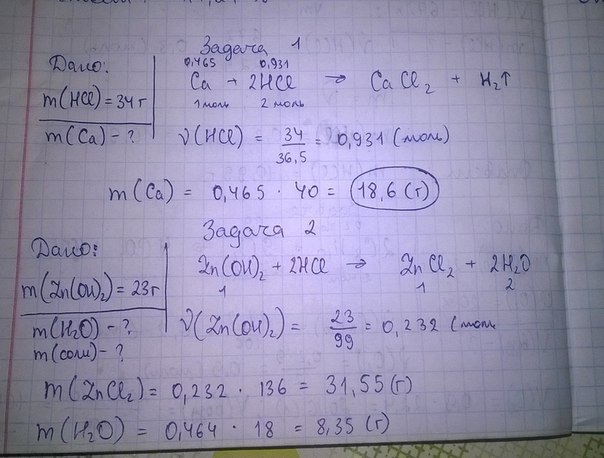 Задача 1
Дано:
m(HCl) = 34 г
m(Ca) - ?
0,465 0,931
Ca + 2HCl → CaCl₂ + H₂↑
1 моль 2 моль
ν(HCl) = 34/36,5 = 0,931 (моль)
m(Ca) = 0,465 · 40 = 18,6 (г)
Задача 2
Дано:
m(Zn(OH)₂) = 23 г
m(H₂O) - ?
m(соли) - ?
Zn(OH)₂ + 2HCl → ZnCl₂ + 2H₂O
1 1 2
ν(Zn(OH)₂) = 23/99 = 0,232 (моль
m(ZnCl₂) = 0,232 · 136 = 31,55 (г)
m(H₂O) = 0,464 · 18 = 8,35 (г)